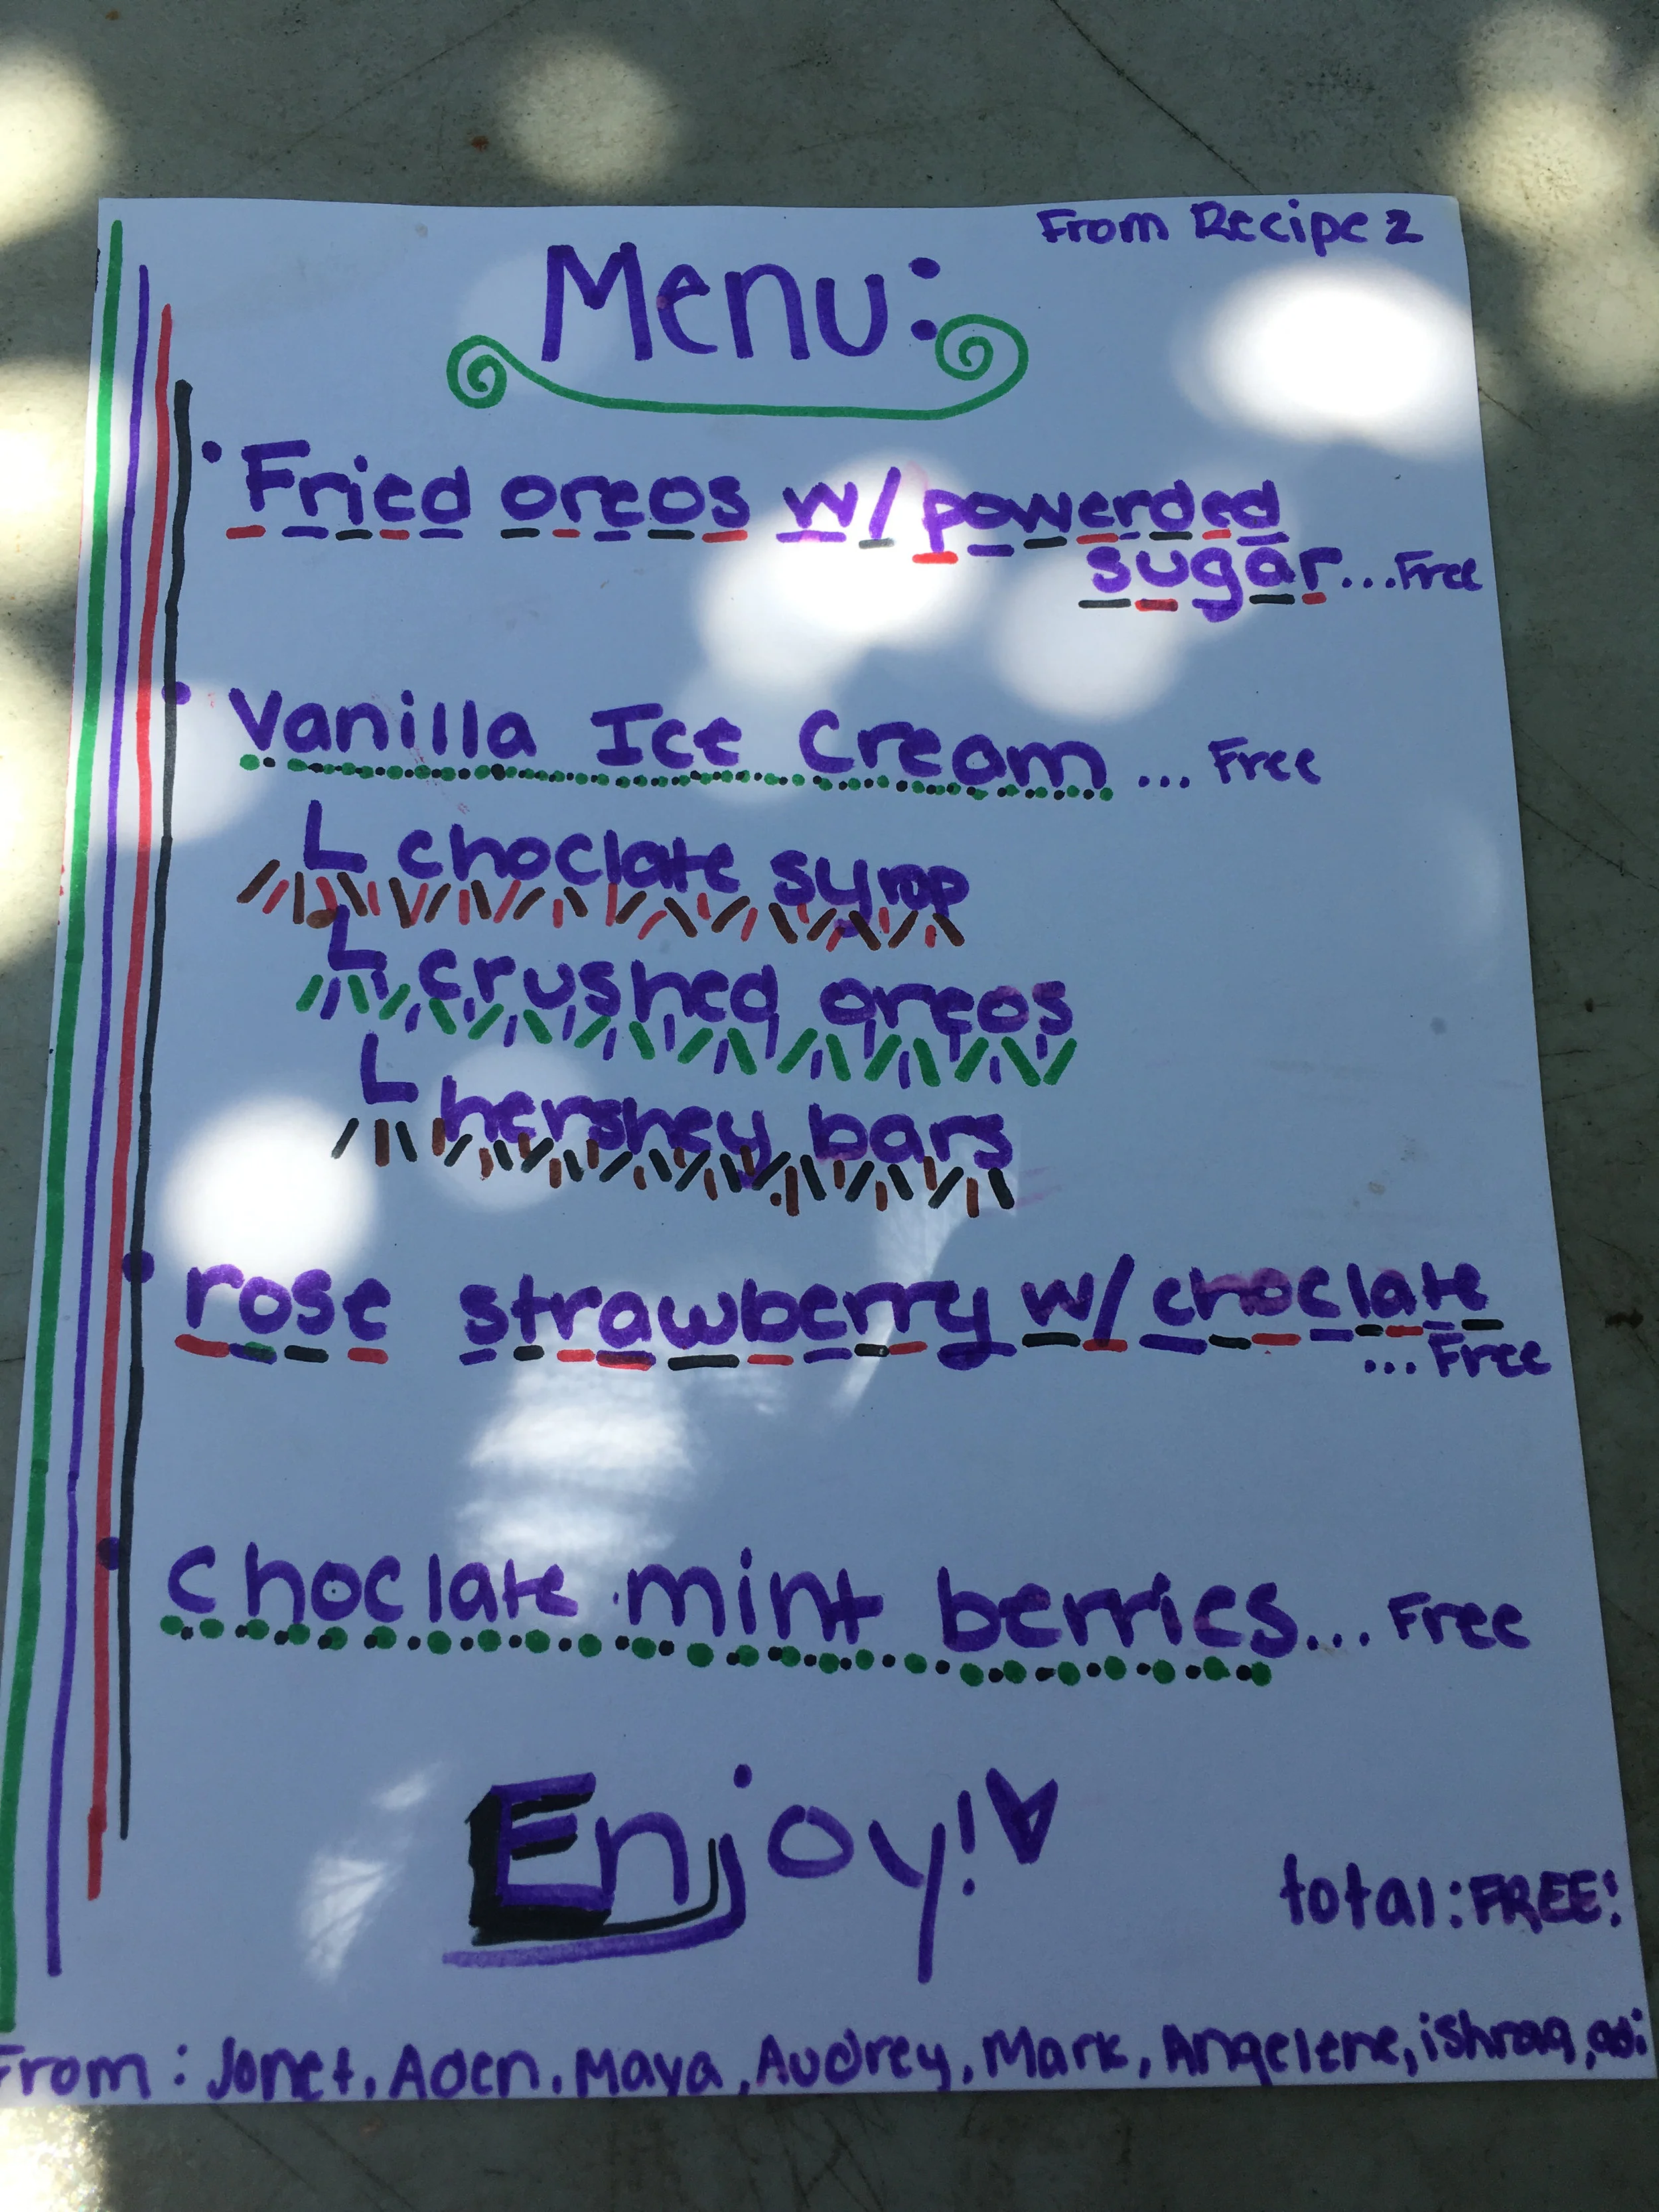 From Recipe 2
Menu:
• Fried oreos w/ powerded
sugar...Free
• Vanilla Ice Cream ... Free
L choclate syrop
L crushed oreos
L hershey bars
• rose strawberry w/ choclate
... Free
• choclate mint berries... Free
Enjoy!
total: FREE!
From: Janet, Aden, Maya, Audrey, Mark, Angelene, ishraq, adi